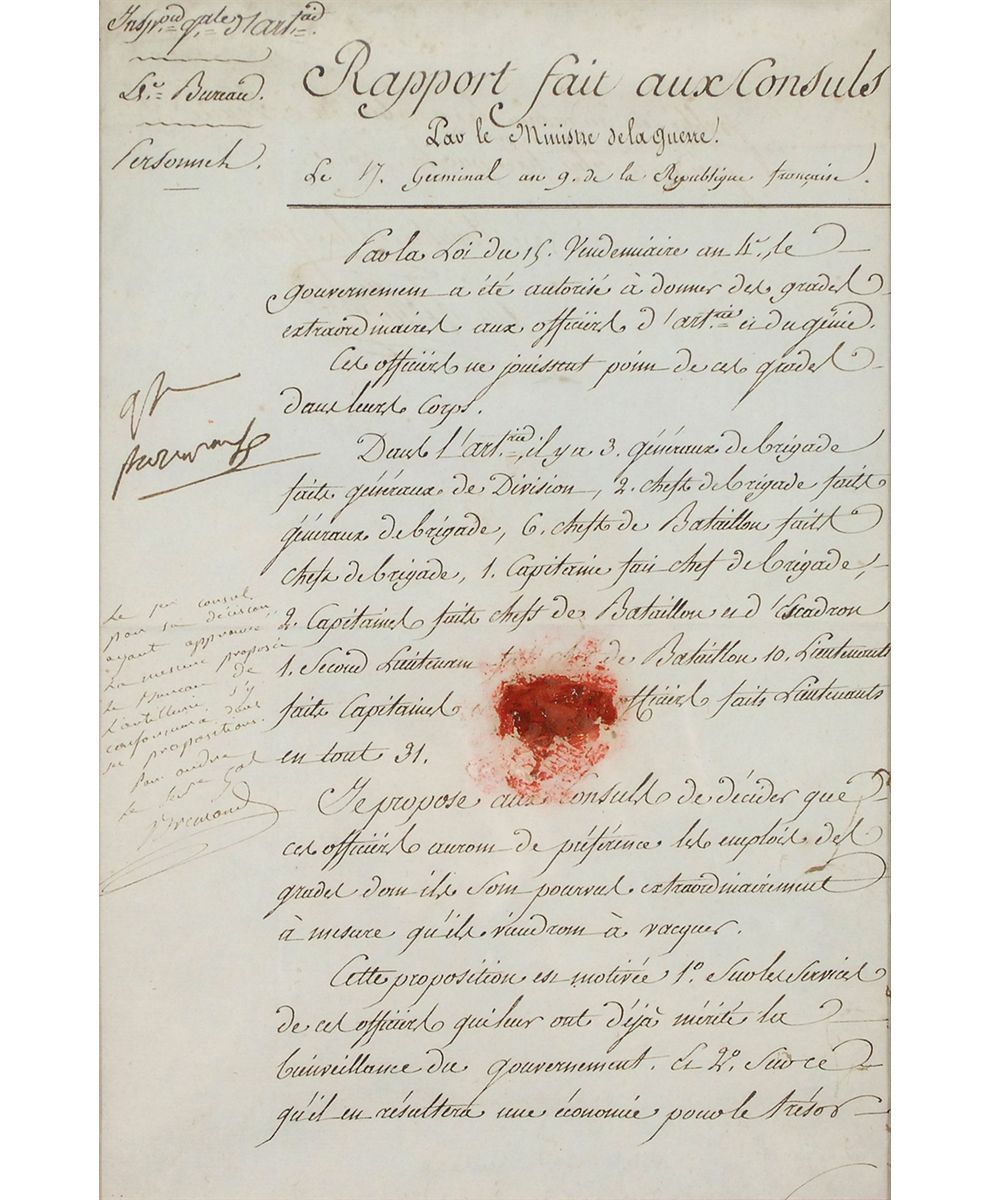 Insp.on g.ale d'art.ie
4.e Bureau.
Personnel.
Rapport fait aux Consuls
Par le Ministre de la Guerre.
Le 17. Germinal an 9. de la République française.
Par la Loi du 15. Vendemiaire an 4.e, le
Gouvernement a été autorisé à donner des grades
extraordinaires aux officiers d'art.rie et du génie.
Ces officiers ne jouissent point de ces grades
dans leurs Corps.
Dans l'art.rie, il y a 3. généraux de brigade
faits généraux de Division, 2. chefs de brigade faits
généraux de brigade, 6. chefs de Bataillon faits
chefs de brigade, 1. Capitaine fait chef de brigade,
2. Capitaines faits chefs de Bataillon et d'Escadron
1. Second Lieutenant de Bataillon 10. Lieutenants
faits Capitaines officiers faits Lieutenants
en tout 31.
Je propose aux Consuls de décider que
ces officiers auront de préférence les emplois des
grades dont ils sont pourvus extraordinairement
à mesure qu'ils viendront à vacquer.
Cette proposition est motivée 1.o Sur les Services
de ces officiers qui leur ont déjà mérité la
bienveillance du gouvernement. Et 2.o Sur ce
qu'il en résultera une économie pour le trésor
Le per consul
par sa décision
ayant approuvé
la mesure proposée
le Bureau de
l'artillerie s'y
conformera dans
ses propositions.
Par ordre